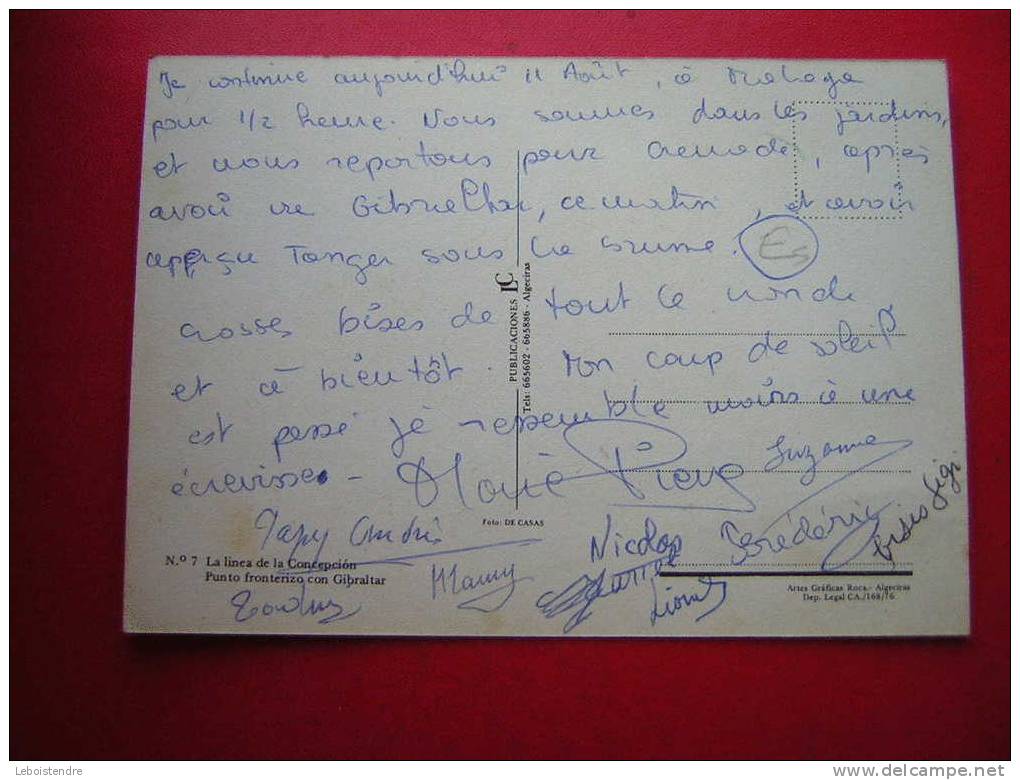 Je continue aujourd'hui 11 Août, à Malaga
pour 1/2 heure. Nous sommes dans les jardins,
et nous repartons pour Grenade, après
avoir vu Gibraltar, ce matin, et avoir
apperçu Tanger sous la brume. Es
Grosses bises de tout le monde
et à bientôt. Mon coup de soleil
est passé je ressemble moins à une
écrevisse - Marie Pierre Suzanne
Papy André Nicolas Frédéric bises Gigi
Mamy Lionel
PUBLICACIONES LC
Tels: 665602 - 665886 - Algeciras
Foto: DE CASAS
N.º 7 La linea de la Concepción
Punto fronterizo con Gibraltar
Artes Gráficas Roca.- Algeciras
Dep. Legal CA./168/76
Leboistendre
www.delcampe.net